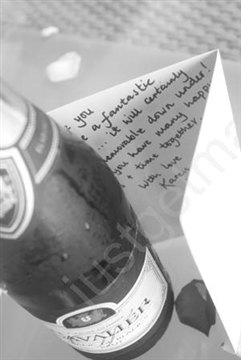 you
e a fantastic
... it will certainly
memorable down under!
you have many happ
+ time together.
with love
Karen
CAVALIER
justgetma